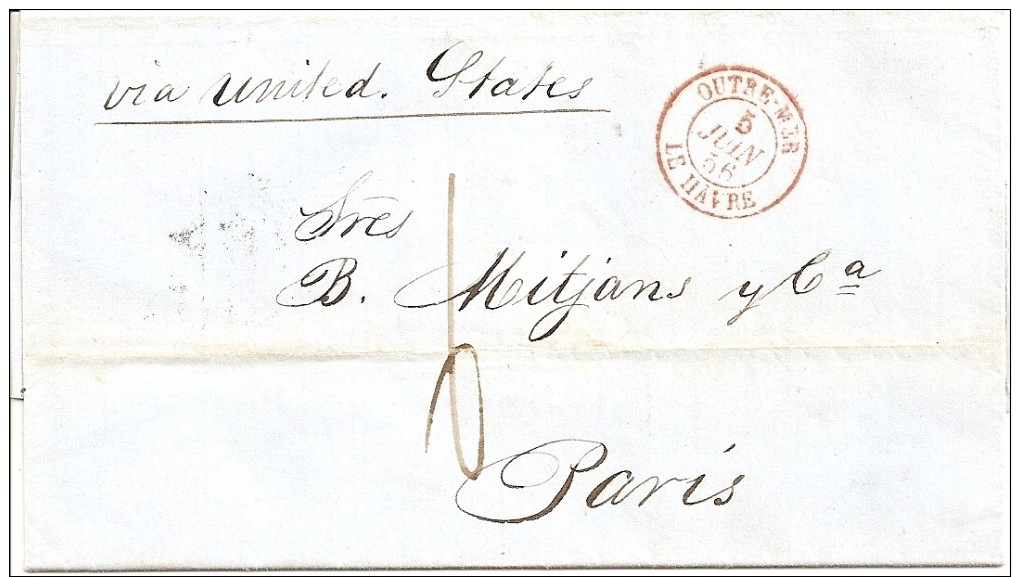 via United. States
OUTRE-MER
5
JUIN
56
LE HAVRE
Sres
B. Mitjans y Ca
6
Paris